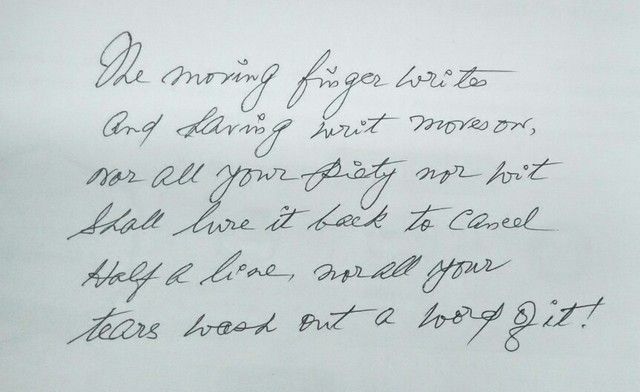 The moving finger writes
and having writ moves on,
nor all your Piety nor wit
Shall lure it back to Cancel
Half a line, nor all your
tears wash out a word of it!